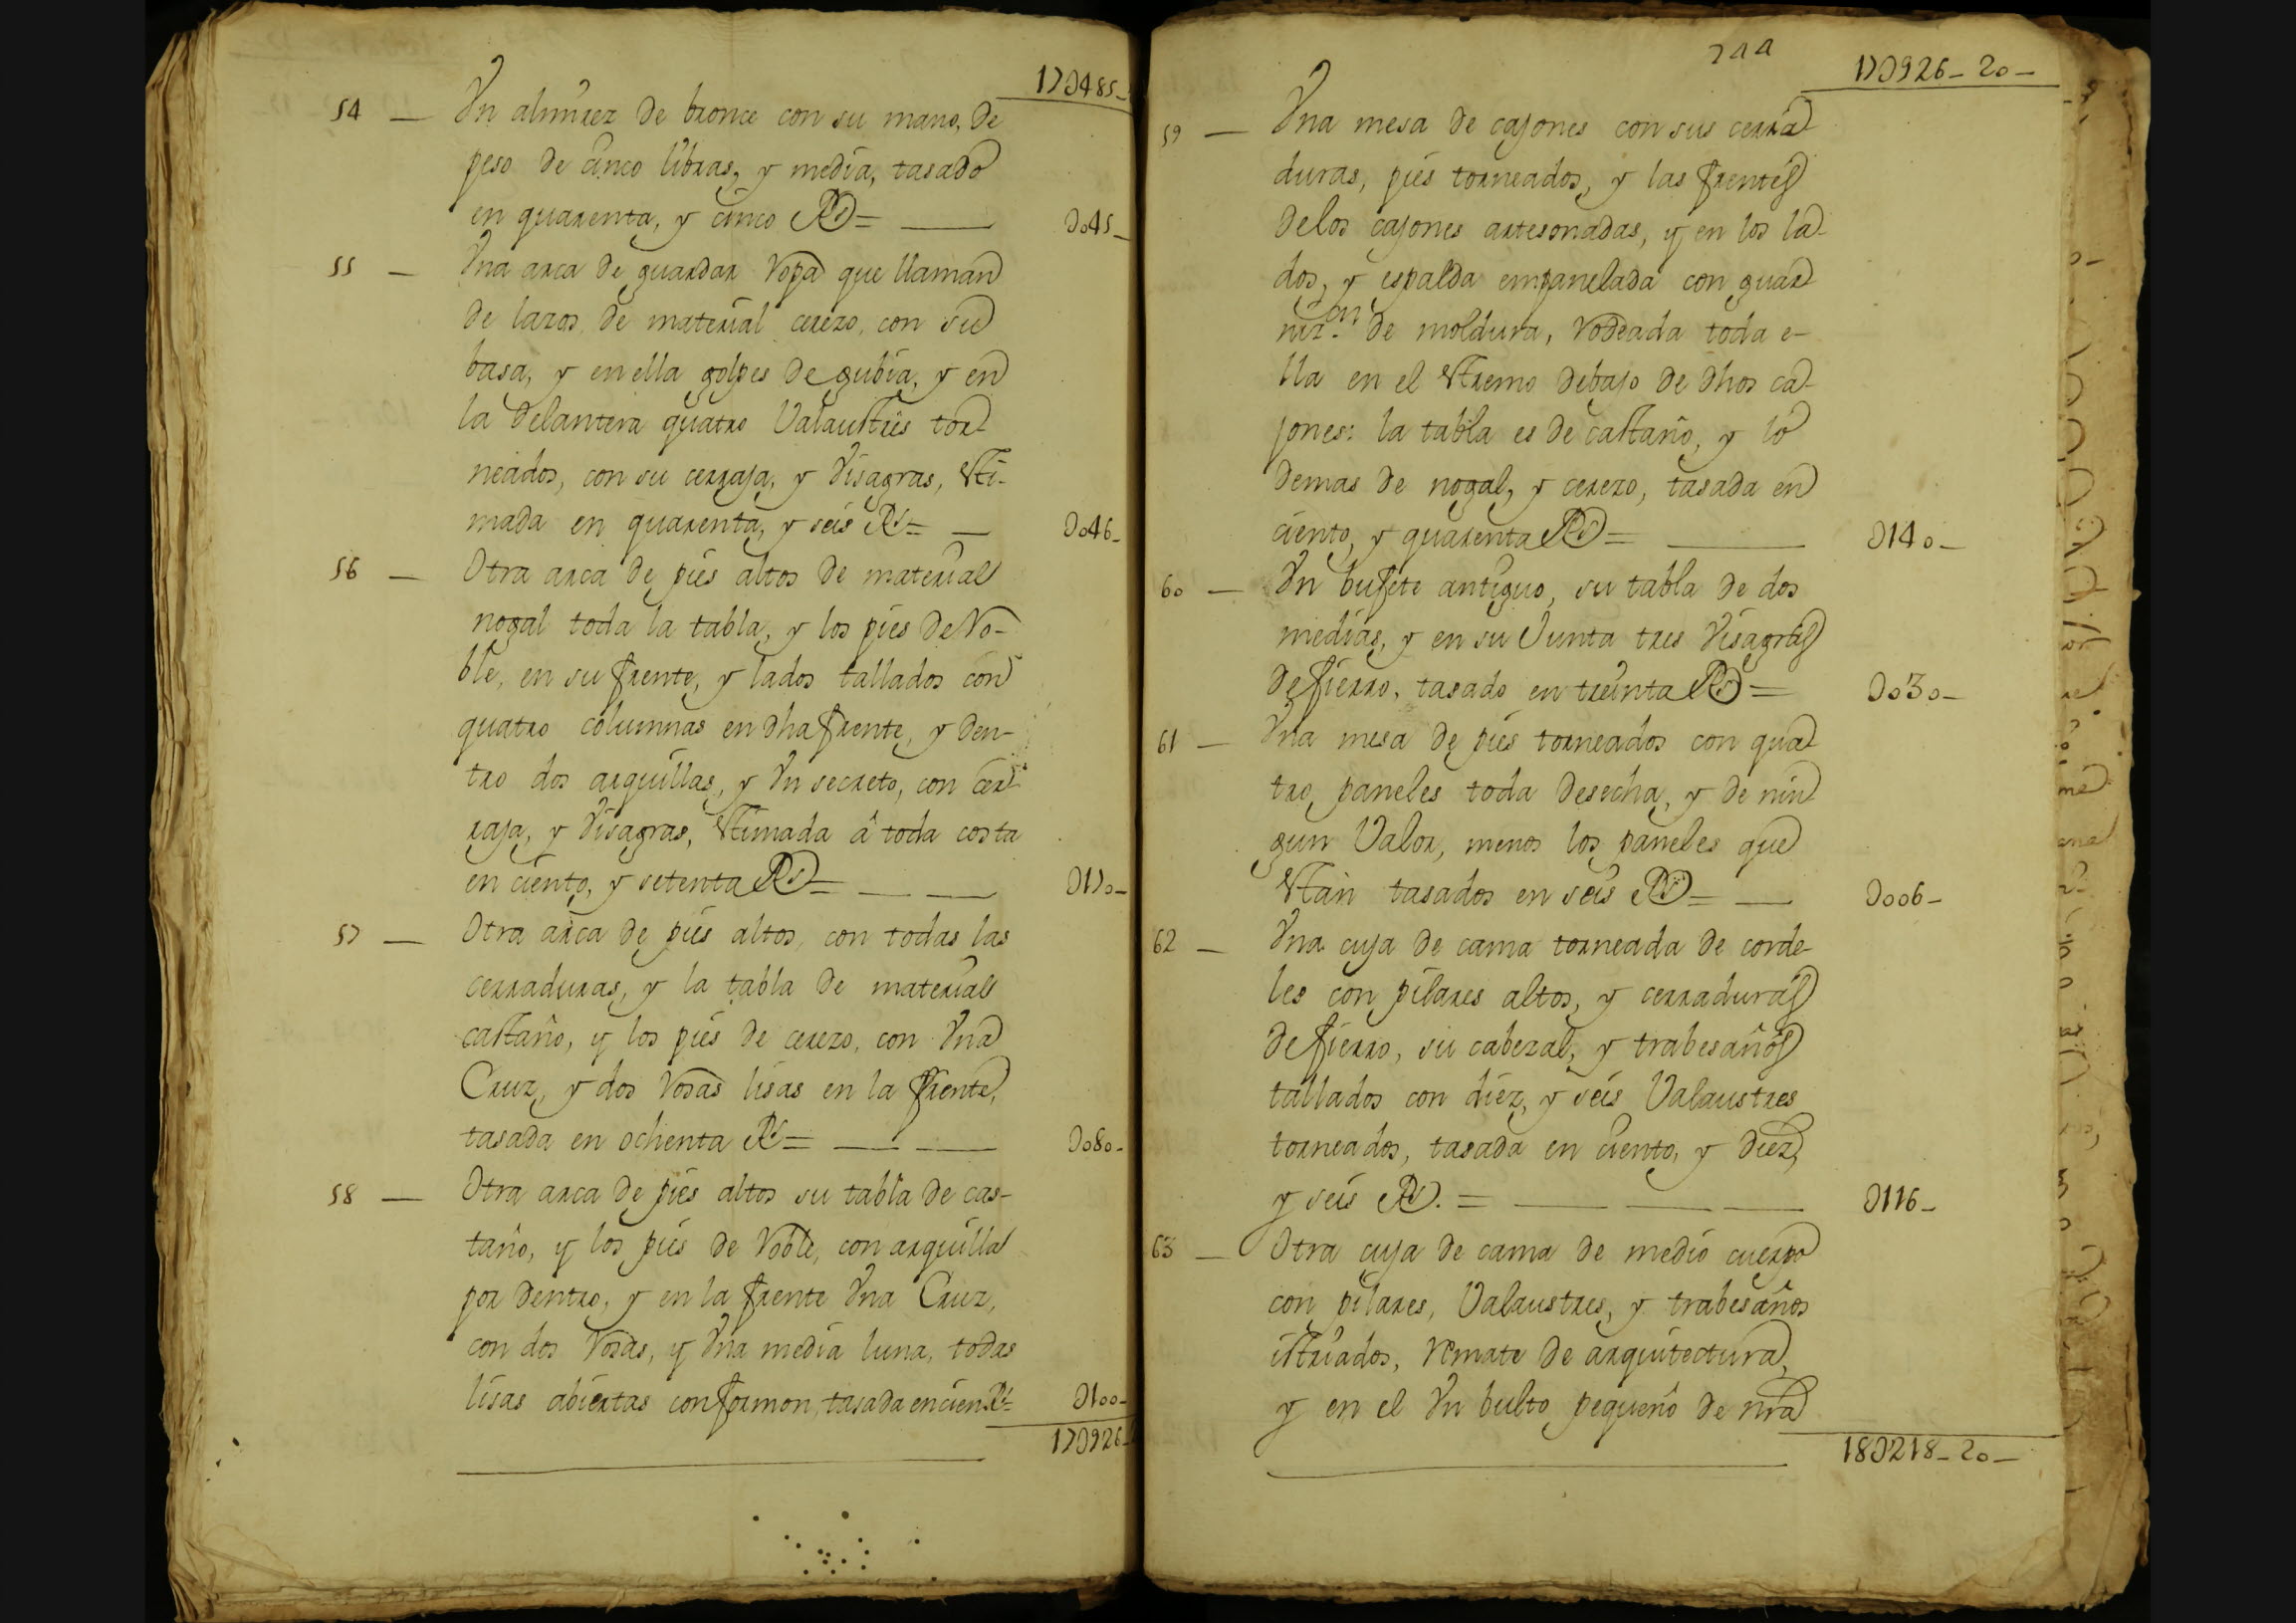 17D485-
54 — Vn almirez de bronce con su mano, de
peso de cinco libras, y media, tasado
en quarenta, y cinco Rs = — D045-
55 — Vna arca de guardar Ropa que llaman
de lazos, de material cerezo, con su
basa, y en ella golpes de gubia, y en
la delantera quatro Valaustres tor-
neados, con su cerraja, y Visagras, esti-
mada en quarenta, y seis Rs = — D046-
56 — Otra arca de pies altos de material
nogal toda la tabla, y los pies de Ro-
ble, en su frente, y lados tallados con
quatro columnas en dha frente, y den-
tro dos arquillas, y Vn secreto, con cer-
raja, y Visagras, estimada â toda costa
en ciento, y setenta Rs = — — D170-
57 — Otra arca de pies altos, con todas las
cerraduras, y la tabla de material
castaño, y los pies de cerezo, con Vna
Cruz, y dos Rosas lisas en la frente,
tasada en ochenta Rs = — — D080-
58 — Otra arca de pies altos su tabla de cas-
taño, y los pies de Roble, con arquilla
por dentro, y en la frente Vna Cruz,
con dos Rosas, y Vna media luna, todas
lisas abiertas con formon, tasada en cien Rs = D100-
17D926-
244
17D926-20-
59 — Vna mesa de cajones con sus cerra-
duras, pies torneados, y las frentes
de los cajones artesonadas, y en los la-
dos, y espalda empanelada con guar-
niz.on de moldura, Rodeada toda e-
lla en el estremo debajo de dhos ca-
jones: la tabla es de castaño, y lo
demas de nogal, y cerezo, tasada en
ciento, y quarenta Rs = — D140-
60 — Vn bufete antiguo, su tabla de dos
medias, y en su Junta tres Visagras
de fierro, tasado en treinta Rs = D030-
61 — Vna mesa de pies torneados con qua-
tro paneles toda desecha, y de nin-
gun Valor, menos los paneles que
estàn tasados en seis Rs = — D006-
62 — Vna cuja de cama torneada de corde-
les con pilares altos, y cerraduras
de fierro, su cabezal, y trabesaños
tallados con diez, y seis Valaustres
torneados, tasada en ciento, y diez,
y seis Rs. = — — — D116-
63 — Otra cuja de cama de medio cuerpo
con pilares, Valaustres, y trabesaños
istriados, Remate de arquitectura,
y en el Vn bulto pequeño de nra
18D218-20-